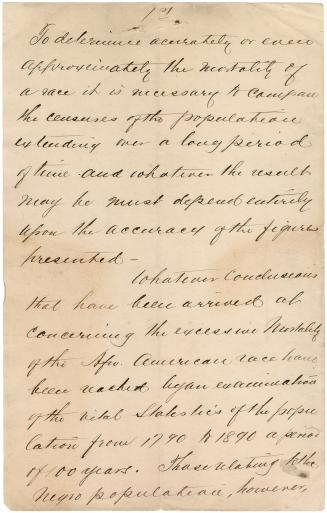 1st
To determine acurately or even
approximately the mortality of
a race it is necessary to compare
the censuses of the population
extending over a long period
of time and whatever the result
may be must depend entirely
upon the accuracy of the figures
presented –
Whatever Conclusions
that have been arrived at
concerning the excessive Mortality
of the Afro. American race have
been reached by an examination
of the vital Statistics of the popu
lation from 1790 to 1890 a period
of 100 years. Those relating to the
Negro population, however,